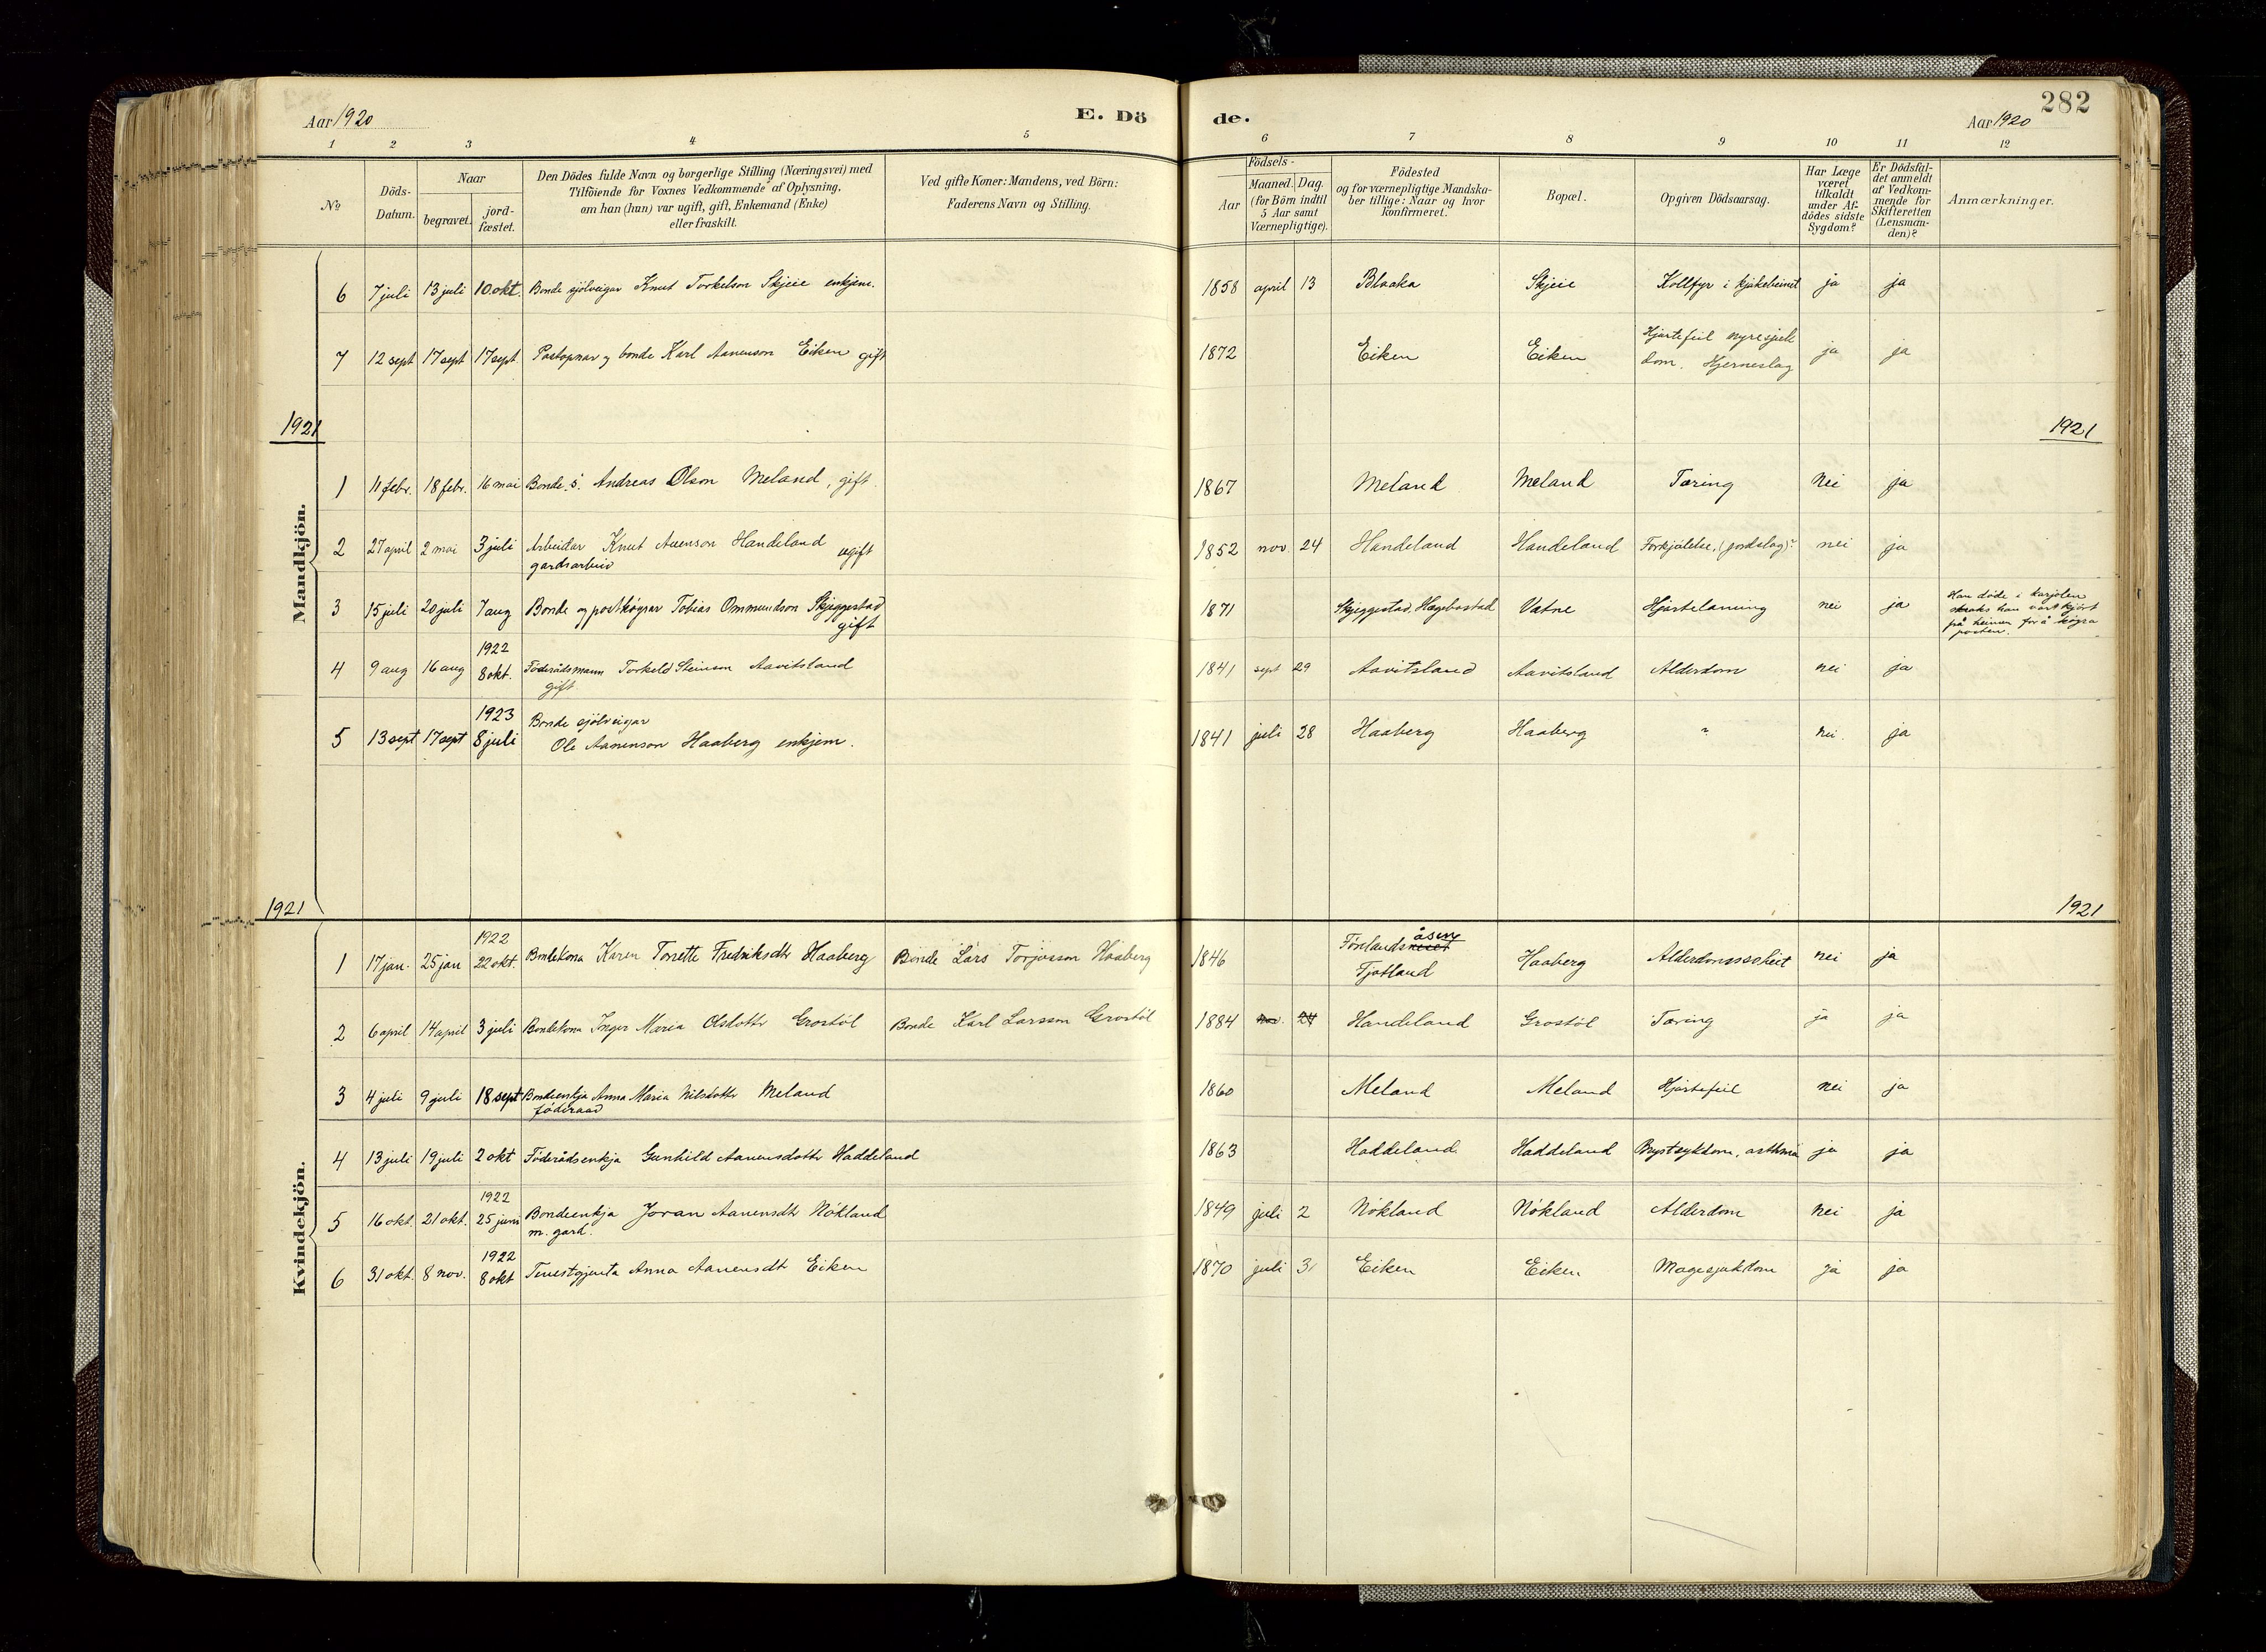 282
Aar 1920
E. Dö
de.
Aar 1920
1 2 3 4 5 6 7 8 9 10 11 12
No
Döds-Datum.
Naar
begravet.
jord-fæstet.
Den Dödes fulde Navn og borgerlige Stilling (Næringsvei) med
Tilföiende for Voxnes Vedkommende af Oplysning,
om han (hun) var ugift, gift, Enkemand (Enke)
eller fraskilt.
Ved gifte Koner: Mandens, ved Börn:
Faderens Navn og Stilling.
Födsels-
Aar
Maaned. Dag.
(for Börn indtil
5 Aar samt
Værnepligtige).
Födested
og for værnepligtige Mandska-
ber tillige: Naar og hvor
konfirmeret.
Bopæl.
Opgiven Dödsaarsag.
Har Læge
været
tilkaldt
under Af-
dödes sidste
Sygdom?
Er Dödsfal-
det anmeldt
af Vedkom-
mende for
Skifteretten
(Lensman-
den)?
Anmærkninger.
6 7 juli 13 juli 10. okt. Bonde sjölveigar Knut Torkelson Skjeie enkjem. 1858 april 13 Blaaka Skjeie Kollfyr i kjakebeinet ja ja
7 12 sept 17 sept 17 sept Postopnar og bonde Karl Aanenson Eiken gift 1872 Eiken Eiken Hjartefeil nyresjuk
dom. Hjerneslag ja ja
1921
1921
Mandkjön.
1 11 febr. 18 febr. 16 mai Bonde. s. Andreas Olson Meland, gift. 1867 Meland Meland Tæring Nei ja
2 27 april 2 mai 3 juli Arbeidar Knut Aaenson Handeland ugift
gardsarbeid
1852 nov. 24 Handeland Handeland Forkjölelse. (jordslag)? nei ja
3 15 juli 20 juli 7 aug Bonde og postkøyrar Tobias Ommundson Skjeggestad
gift
1871 Skjeggestad, Hægebostad Vatne Hjartelaming nei ja
Han døde i karjolen
straks han vart kjört
på heimen for å køyra
posten.
4 9 aug 16 aug 1922
8 okt. Föderådsmann Torkeld Steinson Aavitsland
gift
1841 sept 29 Aavitsland Aavitsland Alderdom nei ja
5 13 sept 17 sept 1923
8 juli Bonde sjölveigar
Ole Aanenson Haaberg enkjem.
1841 juli 28 Haaberg Haaberg " nei. ja
1921
1921
Kvindekjön.
1 17 jan. 25 jan 1922
22 okt. Bondekona Karen Torrette Fredriksdtr Haaberg Bonde Lars Torjusson Haaberg 1846 Förlandsåsen
Fjotland Haaberg Alderdomssvekeit nei ja
2 6 april 14 april 3 juli Bondekona Inger Maria Olsdottr Grostöl Bonde Karl Larsson Grostöl 1884 nov. 24 Handeland Grostöl Tæring ja ja
3 4 juli 9 juli 18 sept Bondeenkja Anna Maria Nilsdottr Meland
föderaad
1860 Meland Meland Hjartefeil nei ja
4 13 juli 19 juli 2 okt Föderådsenkja Gunhild Aanensdottr Haddeland 1863 Haddeland Haddeland Brystsykdom, asthma ja ja
5 16 okt. 21 okt. 1922
25 juni Bondeenkja Joran Aanensdtr Nökland
m. gard.
1849 juli 2 Nökland Nökland Alderdom nei ja
6 31 okt. 8 nov. 1922
8 okt Tenestgjenta Anna Aanensdtr Eiken 1870 juli 31 Eiken Eiken Magesjukdom ja ja